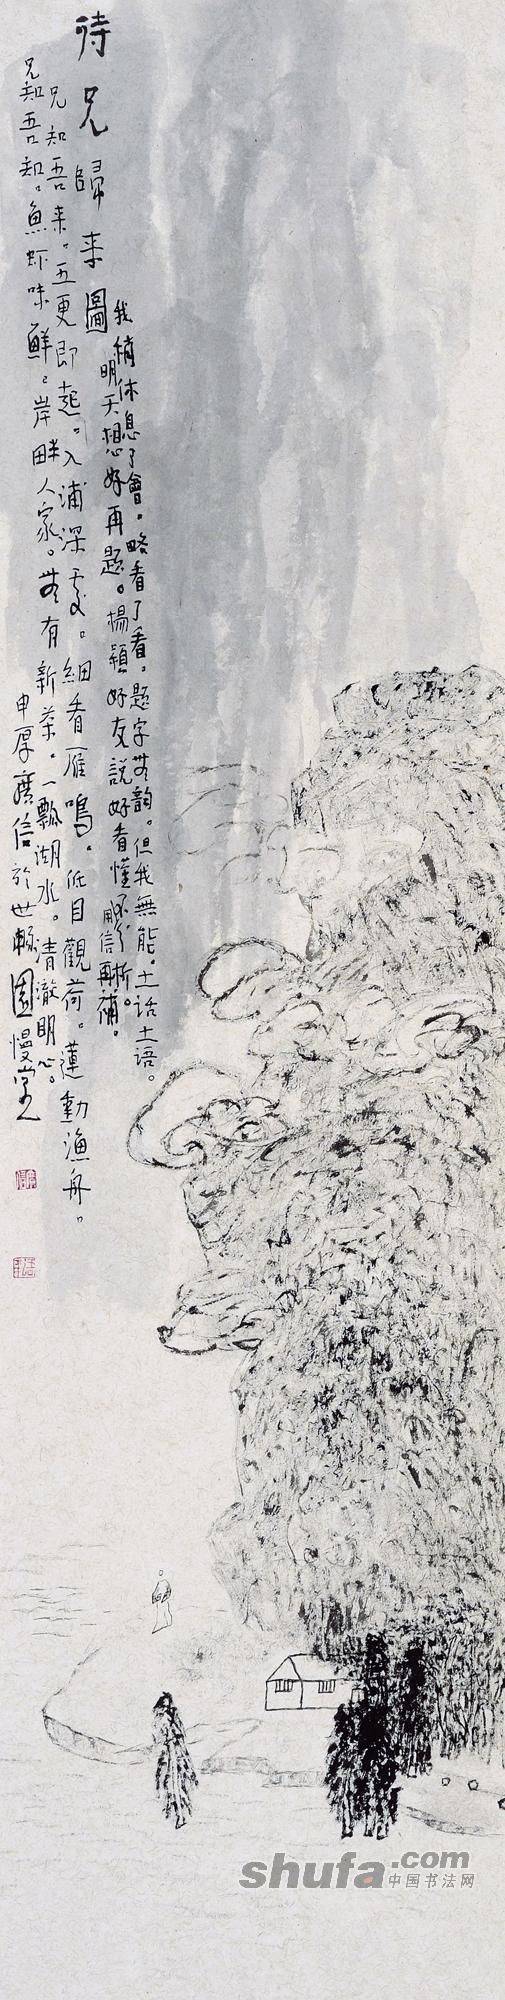 待兄歸来圖
兄知吾来。五更即起。入浦深處。细看雁鳴。低目觀荷。蓮動漁舟。
兄知吾知。魚虾味鮮。岸畔人家。有新茶。一瓢湖水。清澈明心。
廣信於世暢園慢堂
我稍休息了會。略看了看。题字韵。但我無能。土话土语。
明天想好再题。楊穎好友説好看懂
廣信再補。
shufa.com
中国书法网